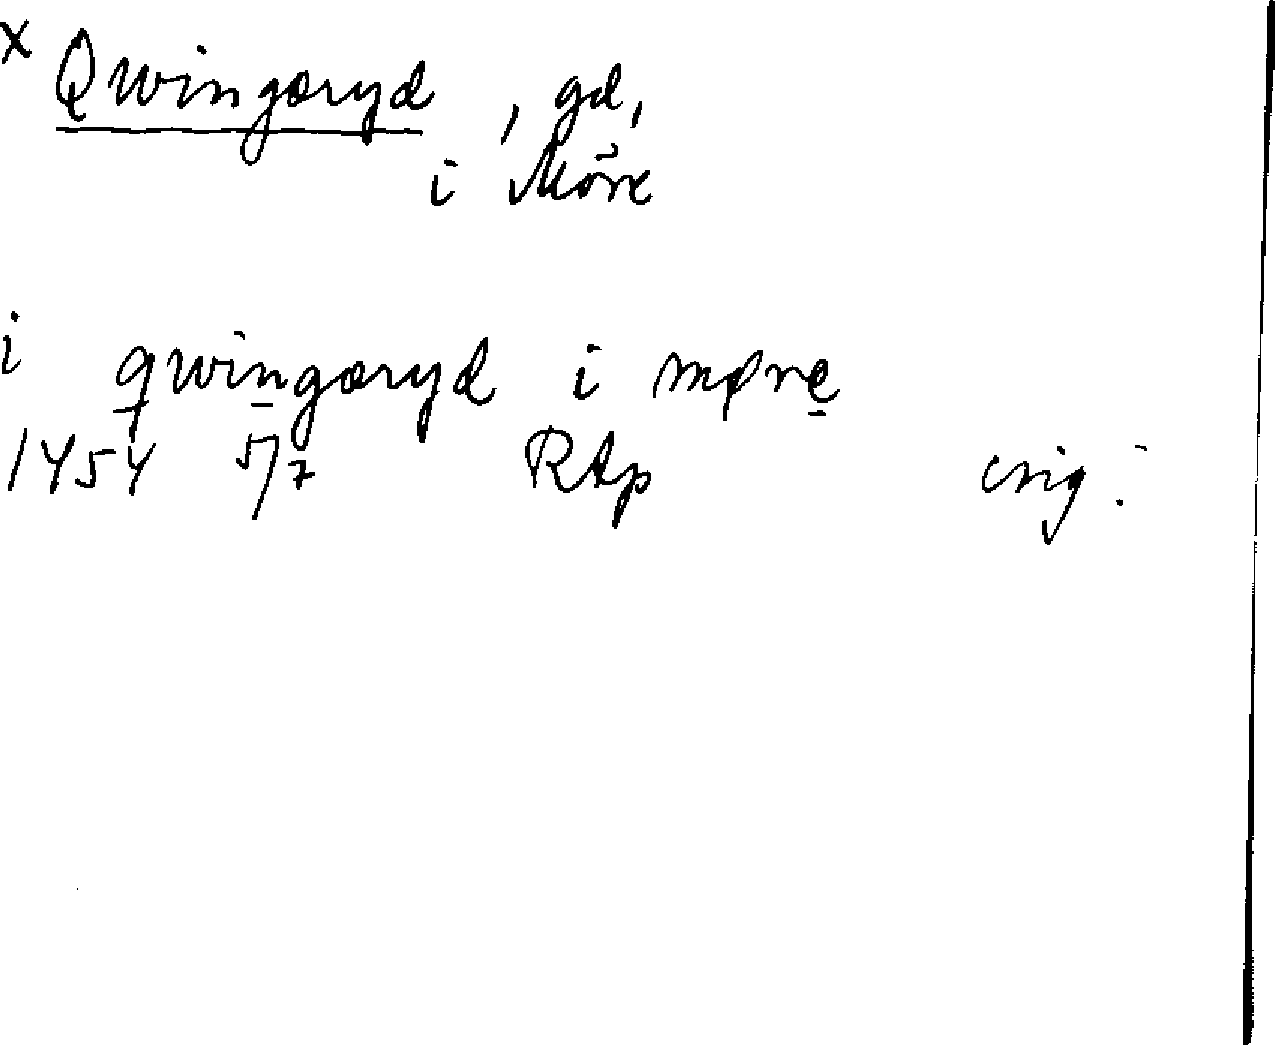 x Qwingæryd, gd,
i Möre
i qwingæryd i møre
1454 5/7 RAp orig.